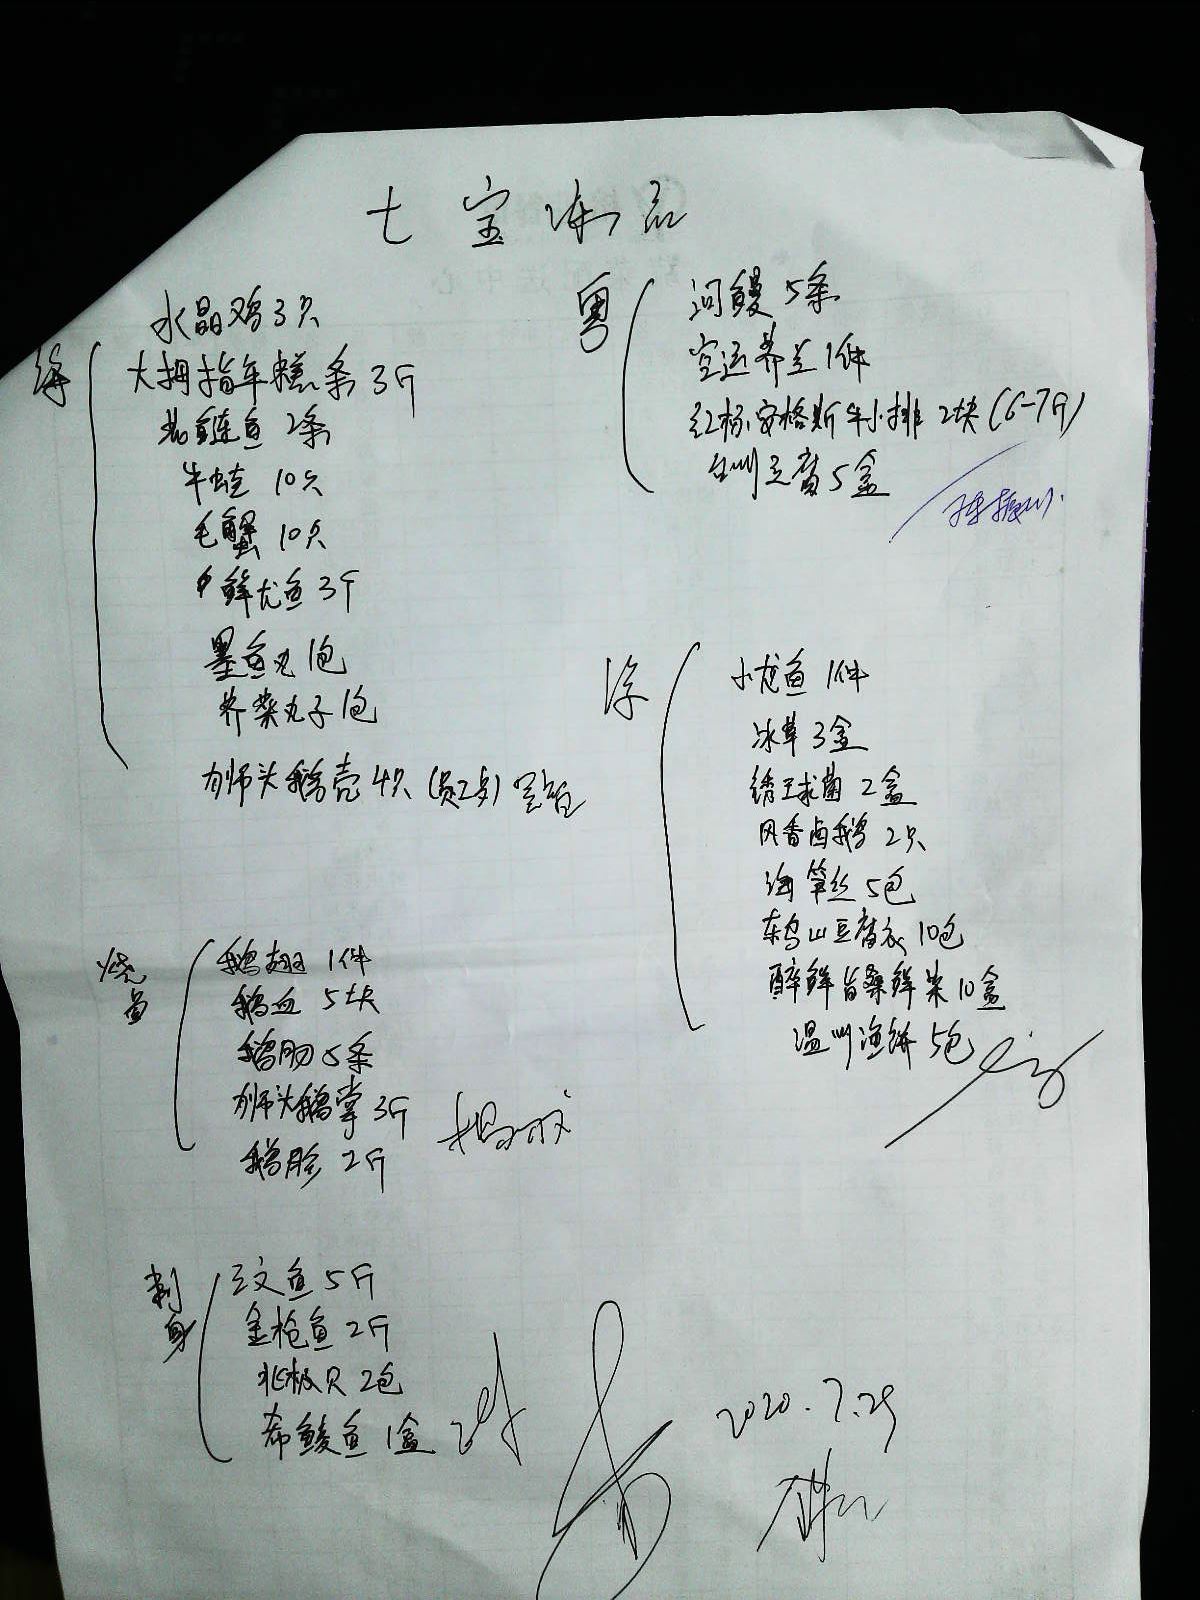 七宝冻品
海
水晶鸡3只
大拇指年糕条3斤
花鲢鱼2条
牛蛙10只
毛蟹10只
中鲜尤鱼3斤
墨鱼丸1包
荠菜丸子1包
狮头鹅壳4只(员工乡)
烧卤
鹅翅1件
鹅血5块
鹅肠5条
狮头鹅掌3斤
鹅胗2斤
刺身
三文鱼5斤
金枪鱼2斤
北极贝2包
希鲮鱼1盒
粤
河鳗5条
空运芥兰1件
红标安格斯牛小排2块(6-7斤)
台州豆腐5盒
淳
小龙鱼1件
冰草3盒
绣球菌2盒
风香卤鹅2只
海笋丝5包
东乌山豆腐衣10包
醉鲜旨桑鲜菜10盒
温州渔饼5包
2020.7.29